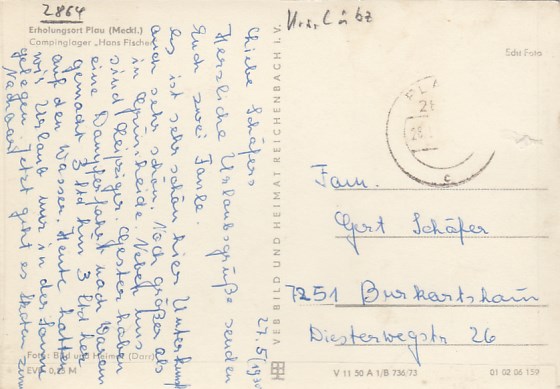 2864
Erholungsort Plau (Meckl.)
Campinglager „Hans Fischer
27.5.
Liebe Schäfers
Herzliche Urlaubsgrüße senden
Euch zwei Fasle.
Es ist sehr schön hier, Unterkunft
auch sehr schön. Noch größer als
in Grünheide. Neben uns
sind Leipziger. Gestern haben
eine Dampferfahrt nach Waren
gemacht 3 Std hin 3 Std her
auf dem Wasser. Heute hatten
wir Urlaub nur in der Sonne
gelegen. Jetzt geht es Skaten zum
Foto: Bild und Heimat (Darr)
EVP 0,15 M
VEB BILD UND HEIMAT REICHENBACH I. V.
Echt Foto
PLA
28
Fam.
Gert Schäfer
7251 Burkartshain
Diesterwegstr 26
V 11 50 A 1/B 736/73
01 02 06 159